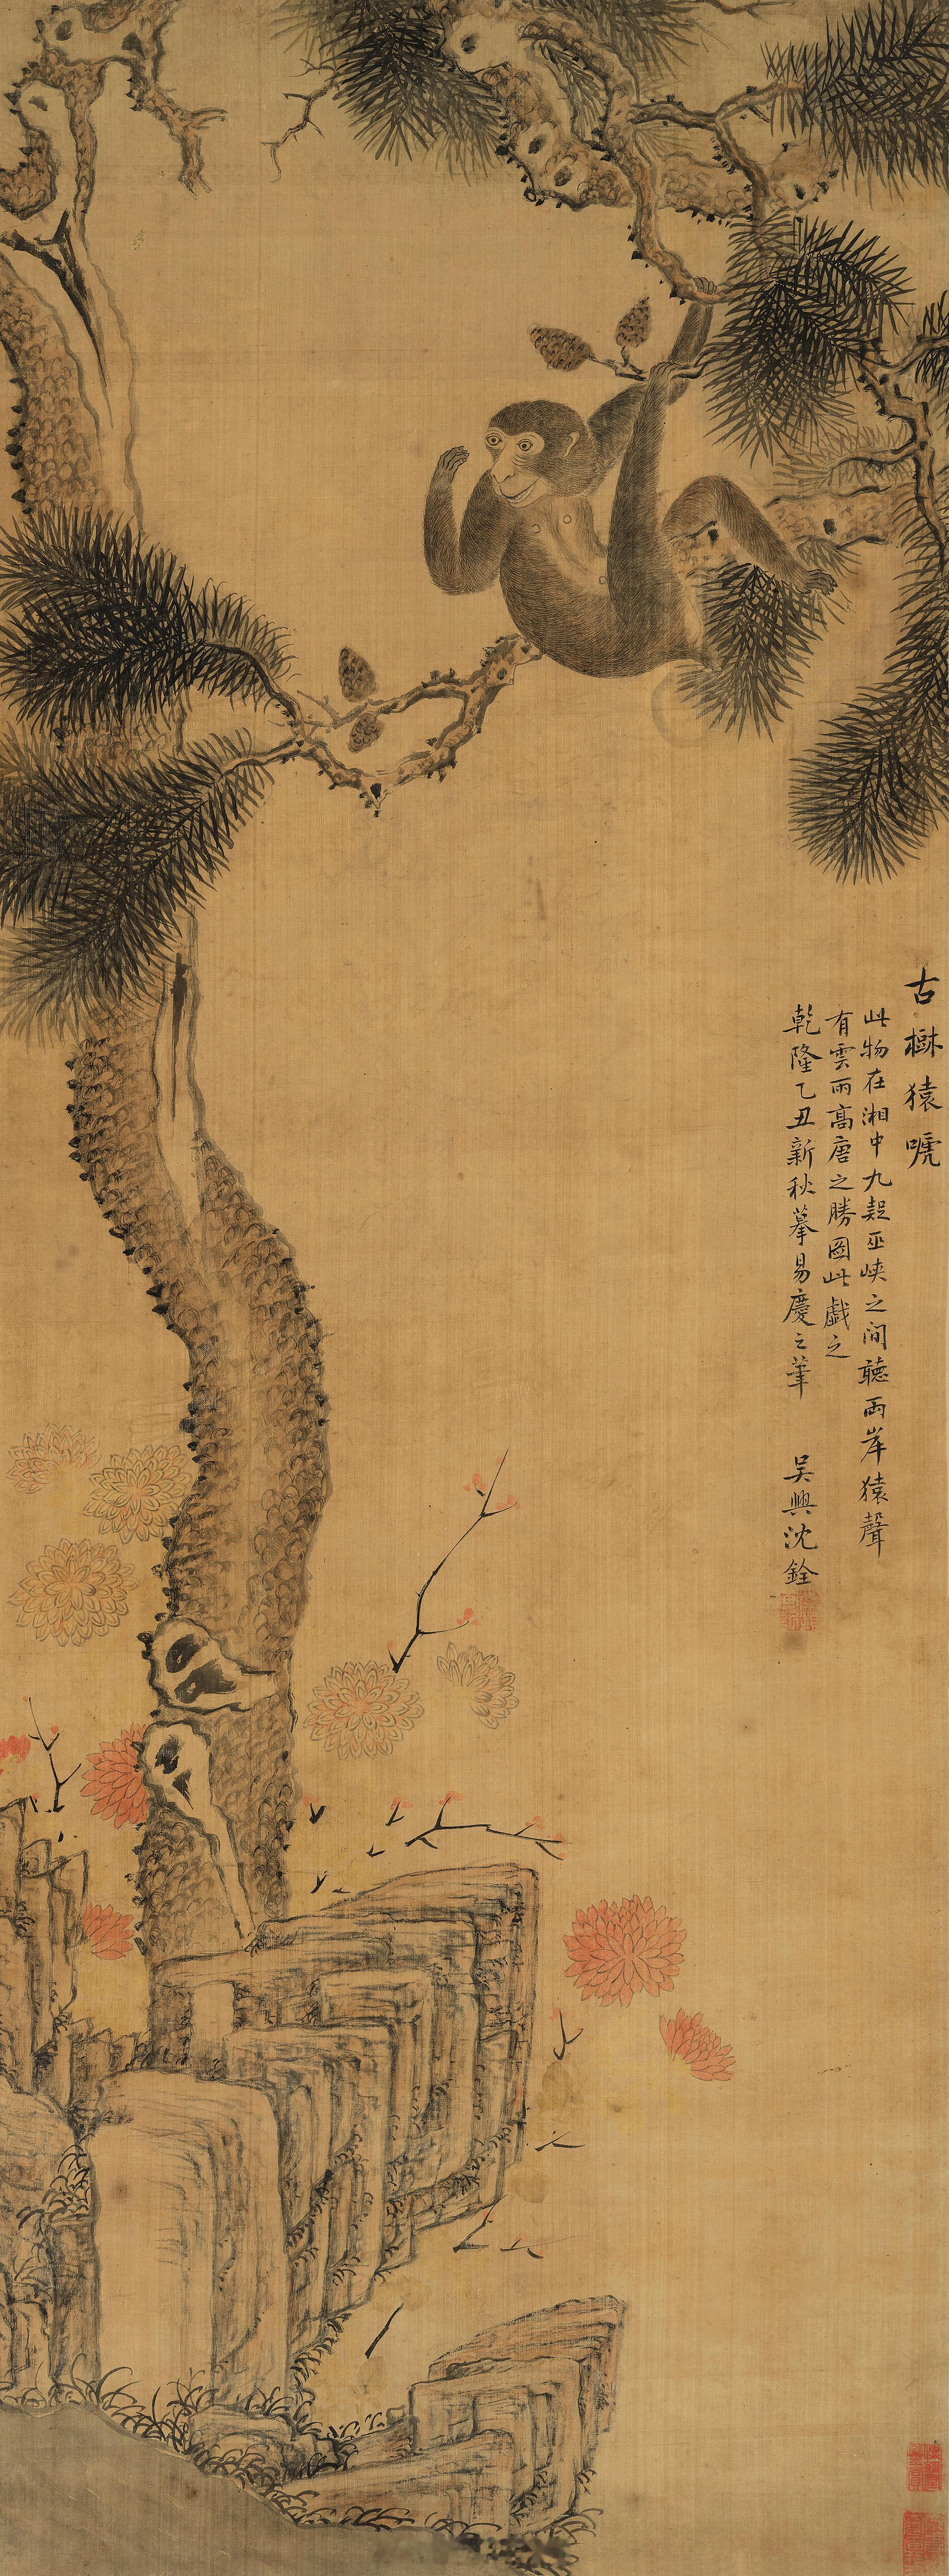 古樹猿嘷
此物在湘中九起巫峽之间聽兩岸猿聲
有雲雨高唐之勝圖此戲之
乾隆乙丑新秋摹易慶之筆 吴興沈銓